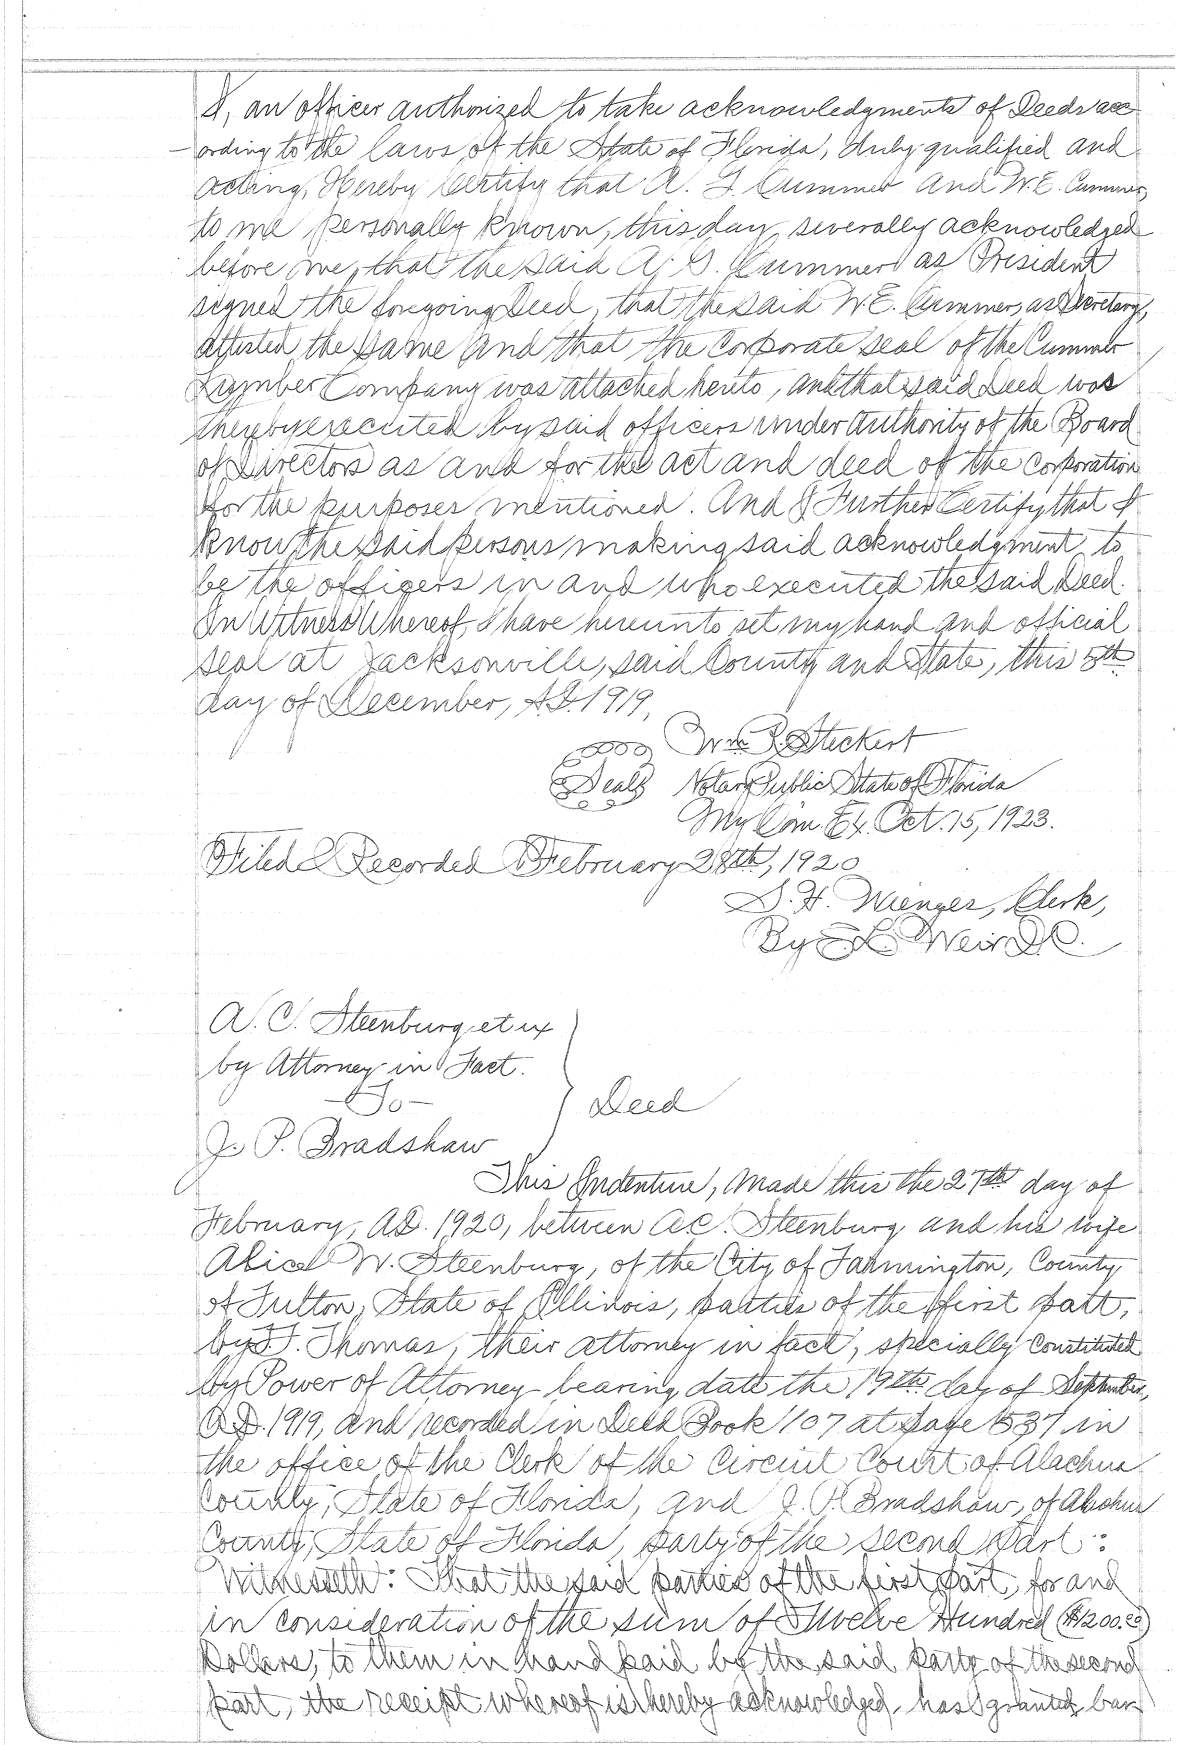 I, an officer authorized to take acknowledgments of Deeds acc-
ording to the laws of the State of Florida, duly qualified and
acting, Hereby Certify that A. G. Cummer and W.E. Cummer,
to me personally known, this day severally acknowledged
before me, that the said A. G. Cummer as President
signed the foregoing Deed, that the said W.E. Cummer, as Secretary,
attested the same and that the corporate seal of the Cummer
Lumber Company was attached hereto, and that said Deed was
thereby executed by said officers under authority of the Board
of Directors as and for the act and deed of the corporation
for the purposes mentioned. And I Further Certify that I
know the said persons making said acknowledgment to
be the officers in and who executed the said Deed.
In Witness Whereof, I have hereunto set my hand and official
seal at Jacksonville, said County and State, this 5th
day of December, A.D. 1919,
Wm. R. Steckert
Seal Notary Public State of Florida
My Com. Ex. Oct. 15, 1923.
Filed & Recorded February 28th, 1920
S. H. Wienges, Clerk,
By E. L. Weir D.C.
A. C. Steenburg et ux
by Attorney in Fact.
-To-
Deed
J. P. Bradshaw
This Indenture, made this the 27th day of
February, A.D. 1920, between A.C. Steenburg and his wife
Alice W. Steenburg, of the City of Farmington, County
of Fulton, State of Illinois, parties of the first part,
by Thomas, their attorney in fact, specially constituted
by Power of Attorney bearing date the 19th day of September,
A.D. 1919, and recorded in Deed Book 107 at page 537 in
the office of the Clerk of the Circuit Court of Alachua
County, State of Florida, and J. P. Bradshaw, of Alachua
County, State of Florida, party of the second part:
Witnesseth: That the said parties of the first part, for and
in consideration of the sum of Twelve Hundred ($1200.00)
Dollars, to them in hand paid by the said party of the second
part, the receipt whereof is hereby acknowledged, has granted, bar